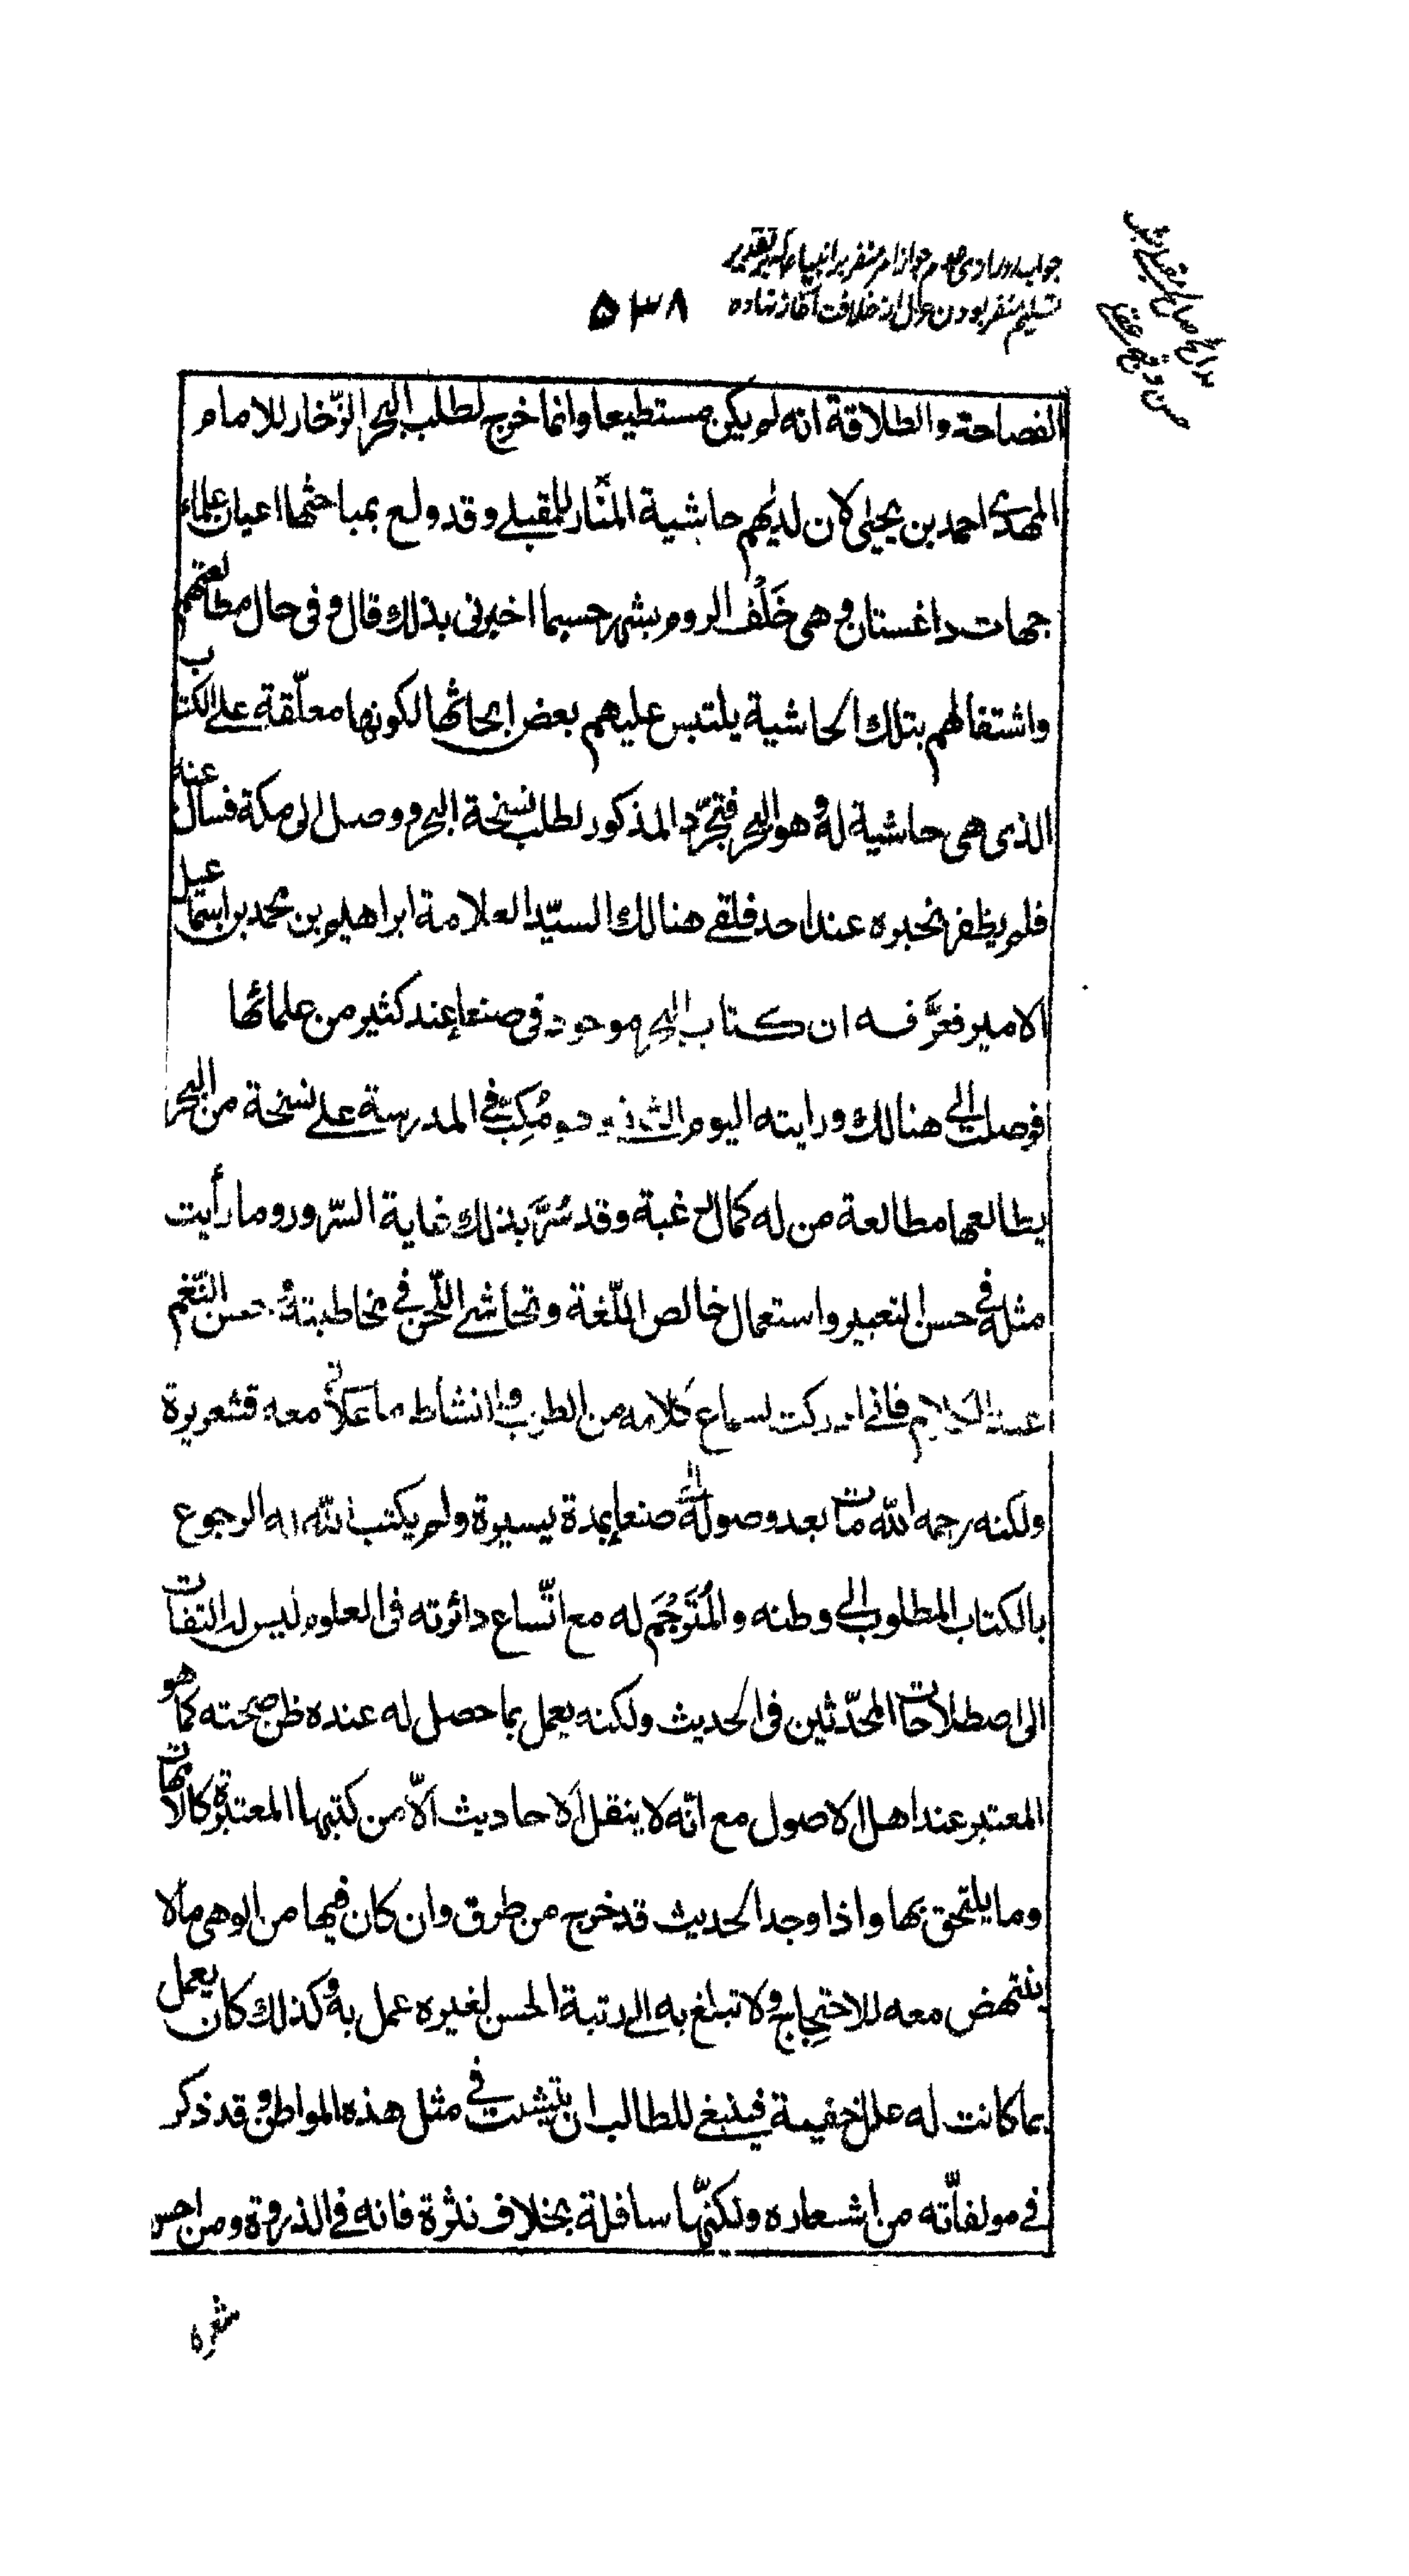 تسليم منفر بودن عزل از خلافت آغاز نهاده
۵۳۸
الفصاحة والطلاقة انه لم يكن مستطيعا وانما خرج لطلب البحر الزّخار للامام
المهدى احمد بن يحيى لان لديهم حاشية المنار للمقبلے وقد ولع بمباحثها اعيان علماء
جهات داغستان وهى خَلْف الروم بشهر حسبما اخبرنى بذلك قال وفى حال مطالعتهم
واشتغالهم بتلك الحاشية يلتبس عليهم بعض ابحاثها لكونها معلّقة على الكتب
الذى هى حاشية له وهو البحر فتجرّد المذكور لطلب نسخة البحر ووصل الى مكة فسأل عنه
فلم يظفر بخبره عند احد فلقے هنالك السيّد العلامة ابراهيم بن محمد بن اسماعيل
الامير فعرَّفه ان كتاب البحر موجود فى صنعا عند كثير من علمائها
فوصلت الى هنالك ورايته اليوم الثانى وهو مُكِبّ فے المدرسة على نسخة من البحر
يطالعها مطالعة من له كمال رغبة وقد سُرَّ بذلك غاية السّرور وما رأيت
مثله فى حسن التعبير واستعمال خالص اللّغة وتحاشے اللّحن فى مخاطبته وحسن النّغم
عند الكلام فانى ادركت لسماع كلامه من الطرب والنشاط ما علانى معه قشعريرة
ولكنه رحمه الله مات بعد وصوله الى صنعا بمدة يسيرة ولم يكتب الله له الرجوع
بالكتاب المطلوب الى وطنه والمُتَرجَم له مع اتّساع دائرته فى العلوم ليس له التفات
الى اصطلاحات المحدّثين فى الحديث ولكنه يعمل بما حصل له عنده ظن صحته كما هو
المعتبر عند اهل الاصول مع انّه لا ينقل الاحاديث الّا من كتبها المعتبرة كالامهات
وما يلتحق بها واذا وجد الحديث قد خرج من طرق وان كان فيها من الوهى ما لا
ينتهض معه للاحتجاج ولا تبلغ به الى رتبة الحسن لغيره عمل به وكذلك كان يعمل
بما كانت له علل خفيفة فينبغى للطالب ان يتثبت فى مثل هذه المواطن وقد ذكر
فى مولفاته من اشعاره ولكنّها سافلة بخلاف نثرة فانه فى الذروة ومن احسن
شعره